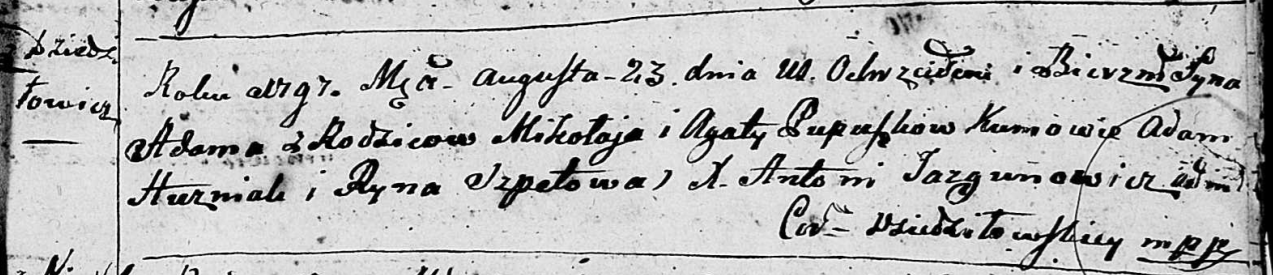 Dziedzi
łowicz
Roku 1797. Mca Augusta 23. dnia W. Ochrzcilem i Bierzm Syna
Adama z Rodzicow Mikołaja i Agaty Pupuszkow Kumowie Adam
Hurniak i Ryna Szpetowa) X. Antoni Jazgunowicz adm
Cer Dziedziłowskiey mpp